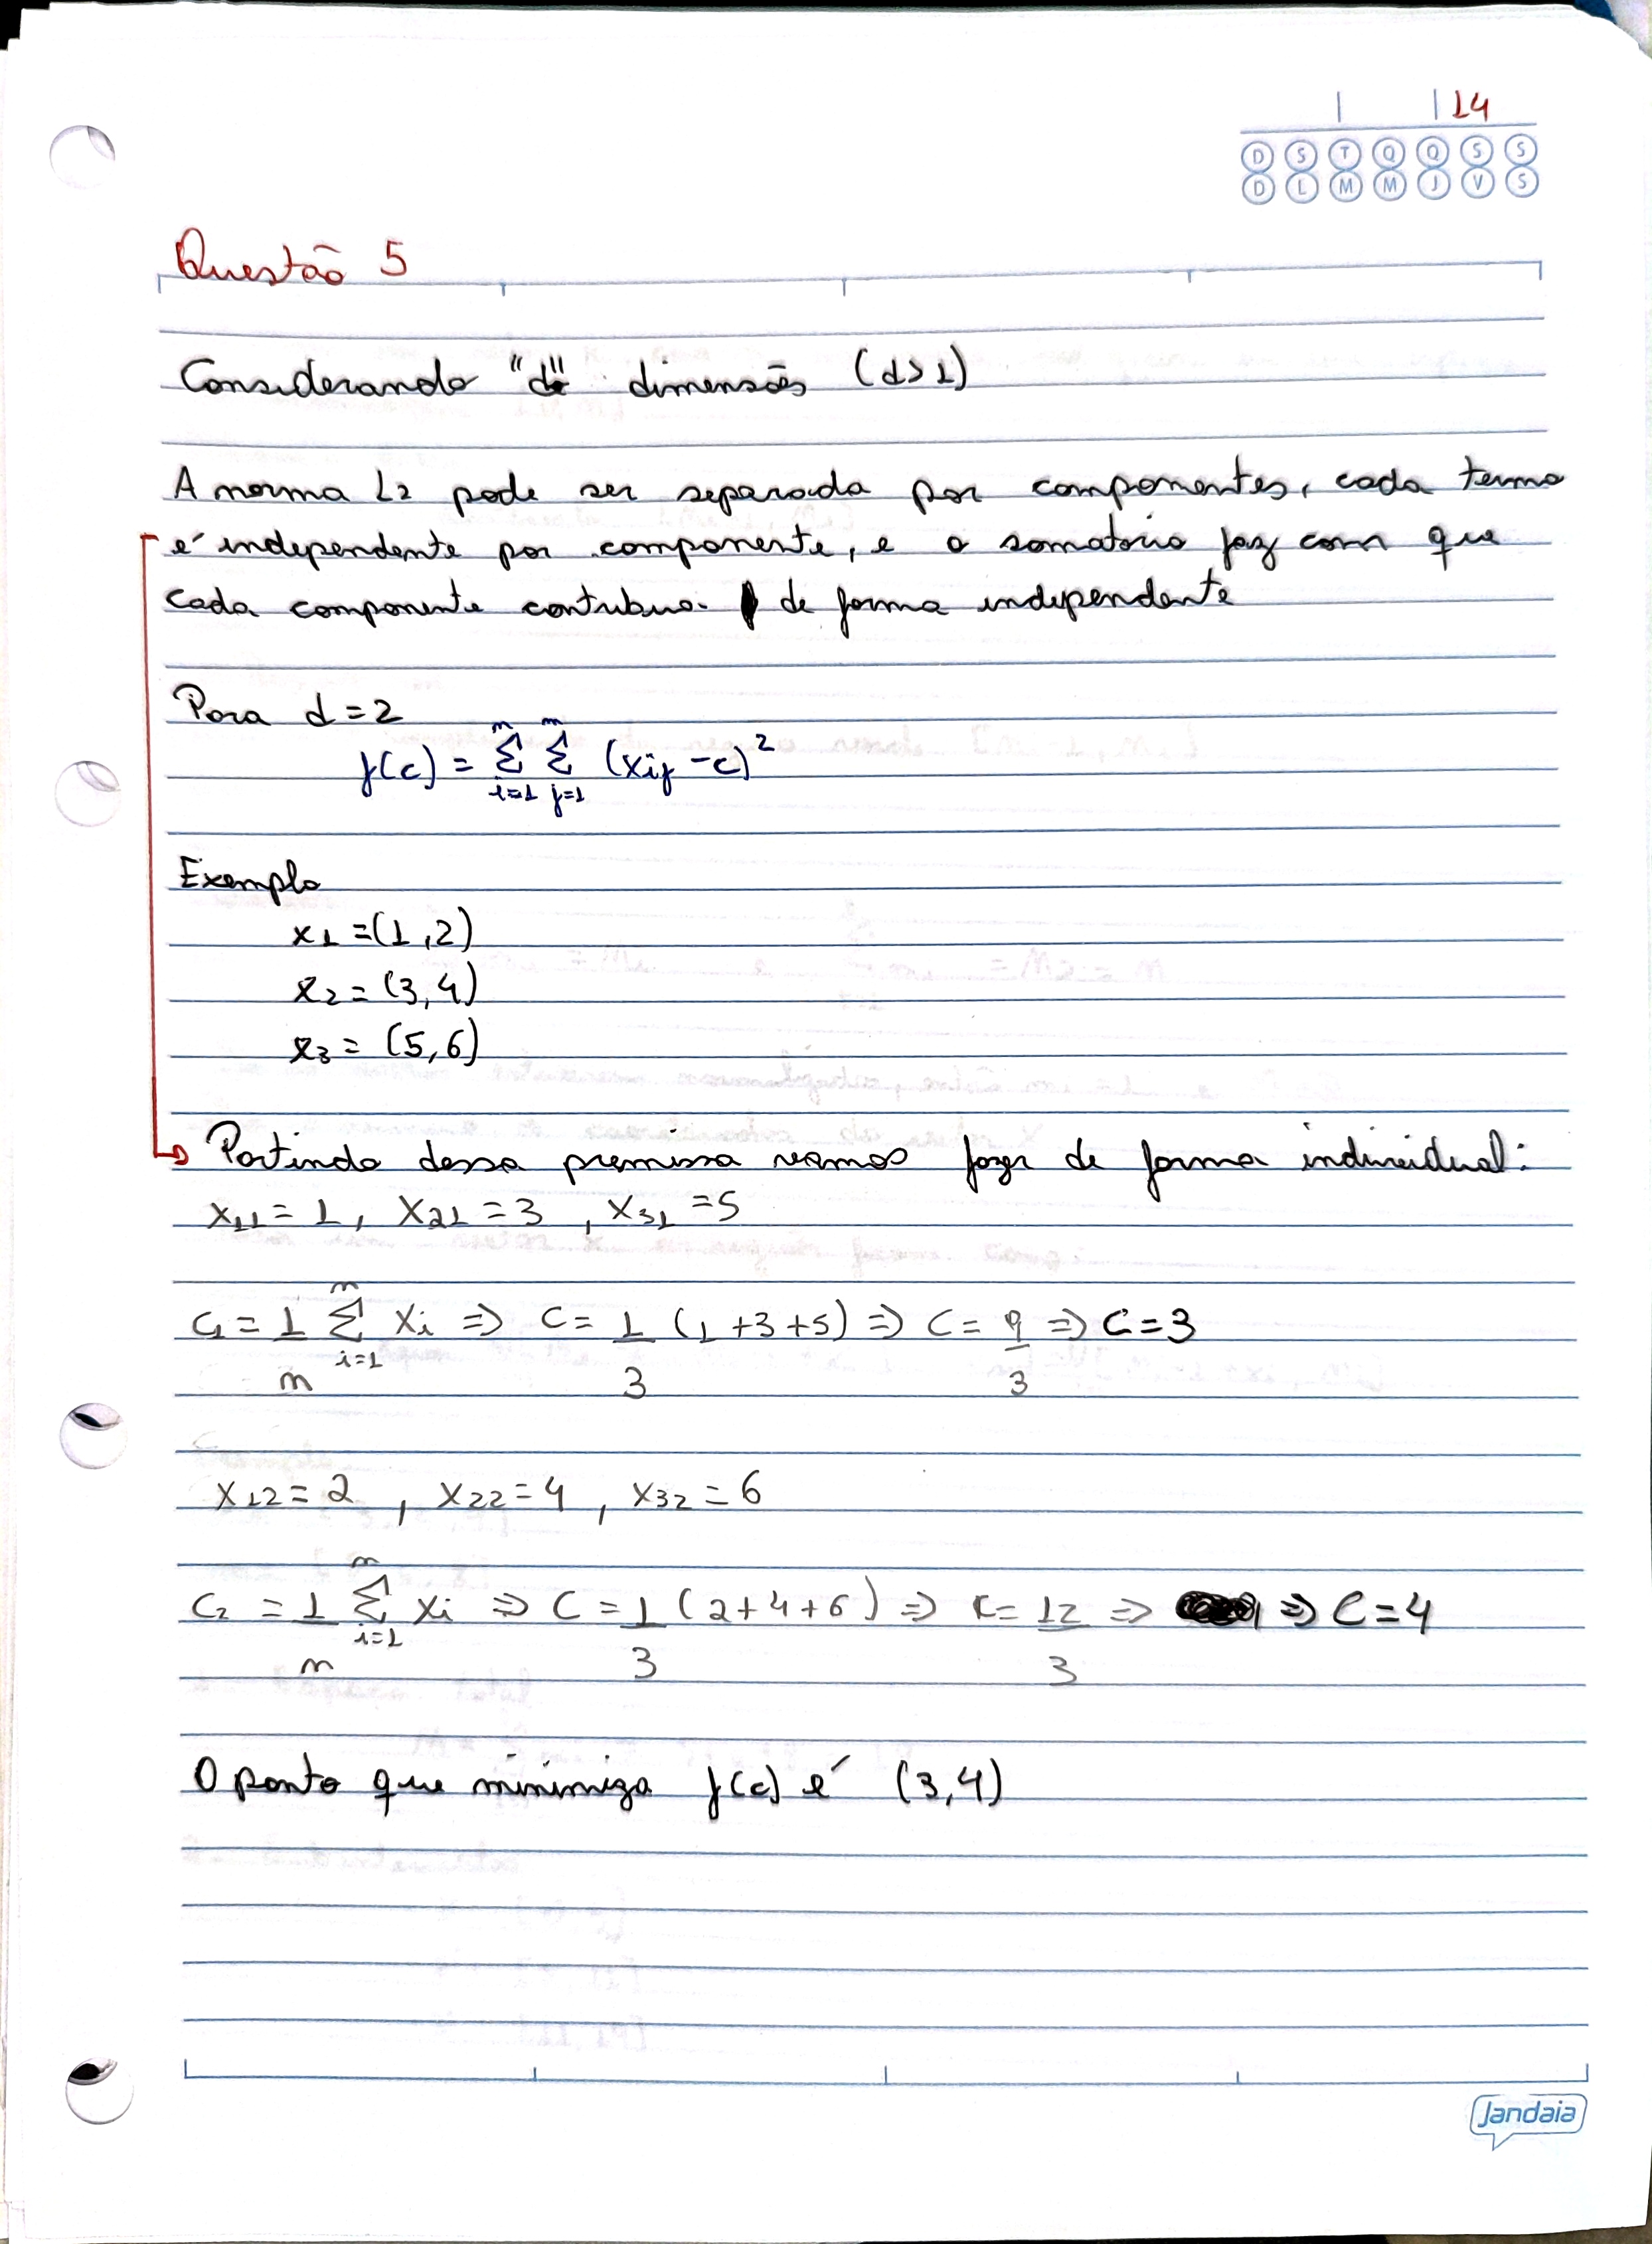 14
D S T Q Q S S
D L M M J V S
Questão 5
Considerando "d" dimensões (d>1)
A norma L2 pode ser separada por componentes, cada termo
é independente por componente, e o somatório faz com que
cada componente contribua de forma independente
Para d=2
f(c) = n∑i=1 m∑j=1 (xij - c)²
Exemplo
x1 = (1,2)
x2 = (3,4)
x3 = (5,6)
Partindo dessa premissa vamos fazer de forma individual:
x11 = 1, x21 = 3, x31 = 5
C1 = 1/n n∑i=1 xi => C = 1/3 (1+3+5) => C = 9/3 => C = 3
x12 = 2, x22 = 4, x32 = 6
C2 = 1/n n∑i=1 xi => C = 1/3 (2+4+6) => C = 12/3 => => C = 4
O ponto que minimiza f(c) é (3,4)
Jandaia